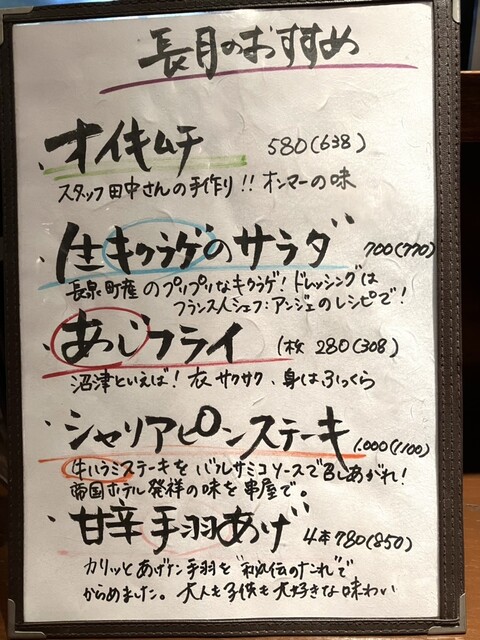 長月のおすすめ
・オイキムチ 580(638)
スタッフ田中さんの手作り!! オンマーの味
・生キクラゲのサラダ 700(770)
長泉町産のプリプリなキクラゲ! ドレッシングは
フランス人シェフ:アンジェのレシピで!
・あじフライ 1枚 280(308)
沼津といえば! 衣サクサク、身はふっくら
・シャリアピンステーキ 1,000(1100)
牛ハラミステーキをバルサミコソースで召しあがれ!
帝国ホテル発祥の味を串屋で。
・甘辛手羽あげ 4本780(850)
カリッとあげた手羽を"秘伝のたれ"で
からめました。大人も子供も大好きな味わい